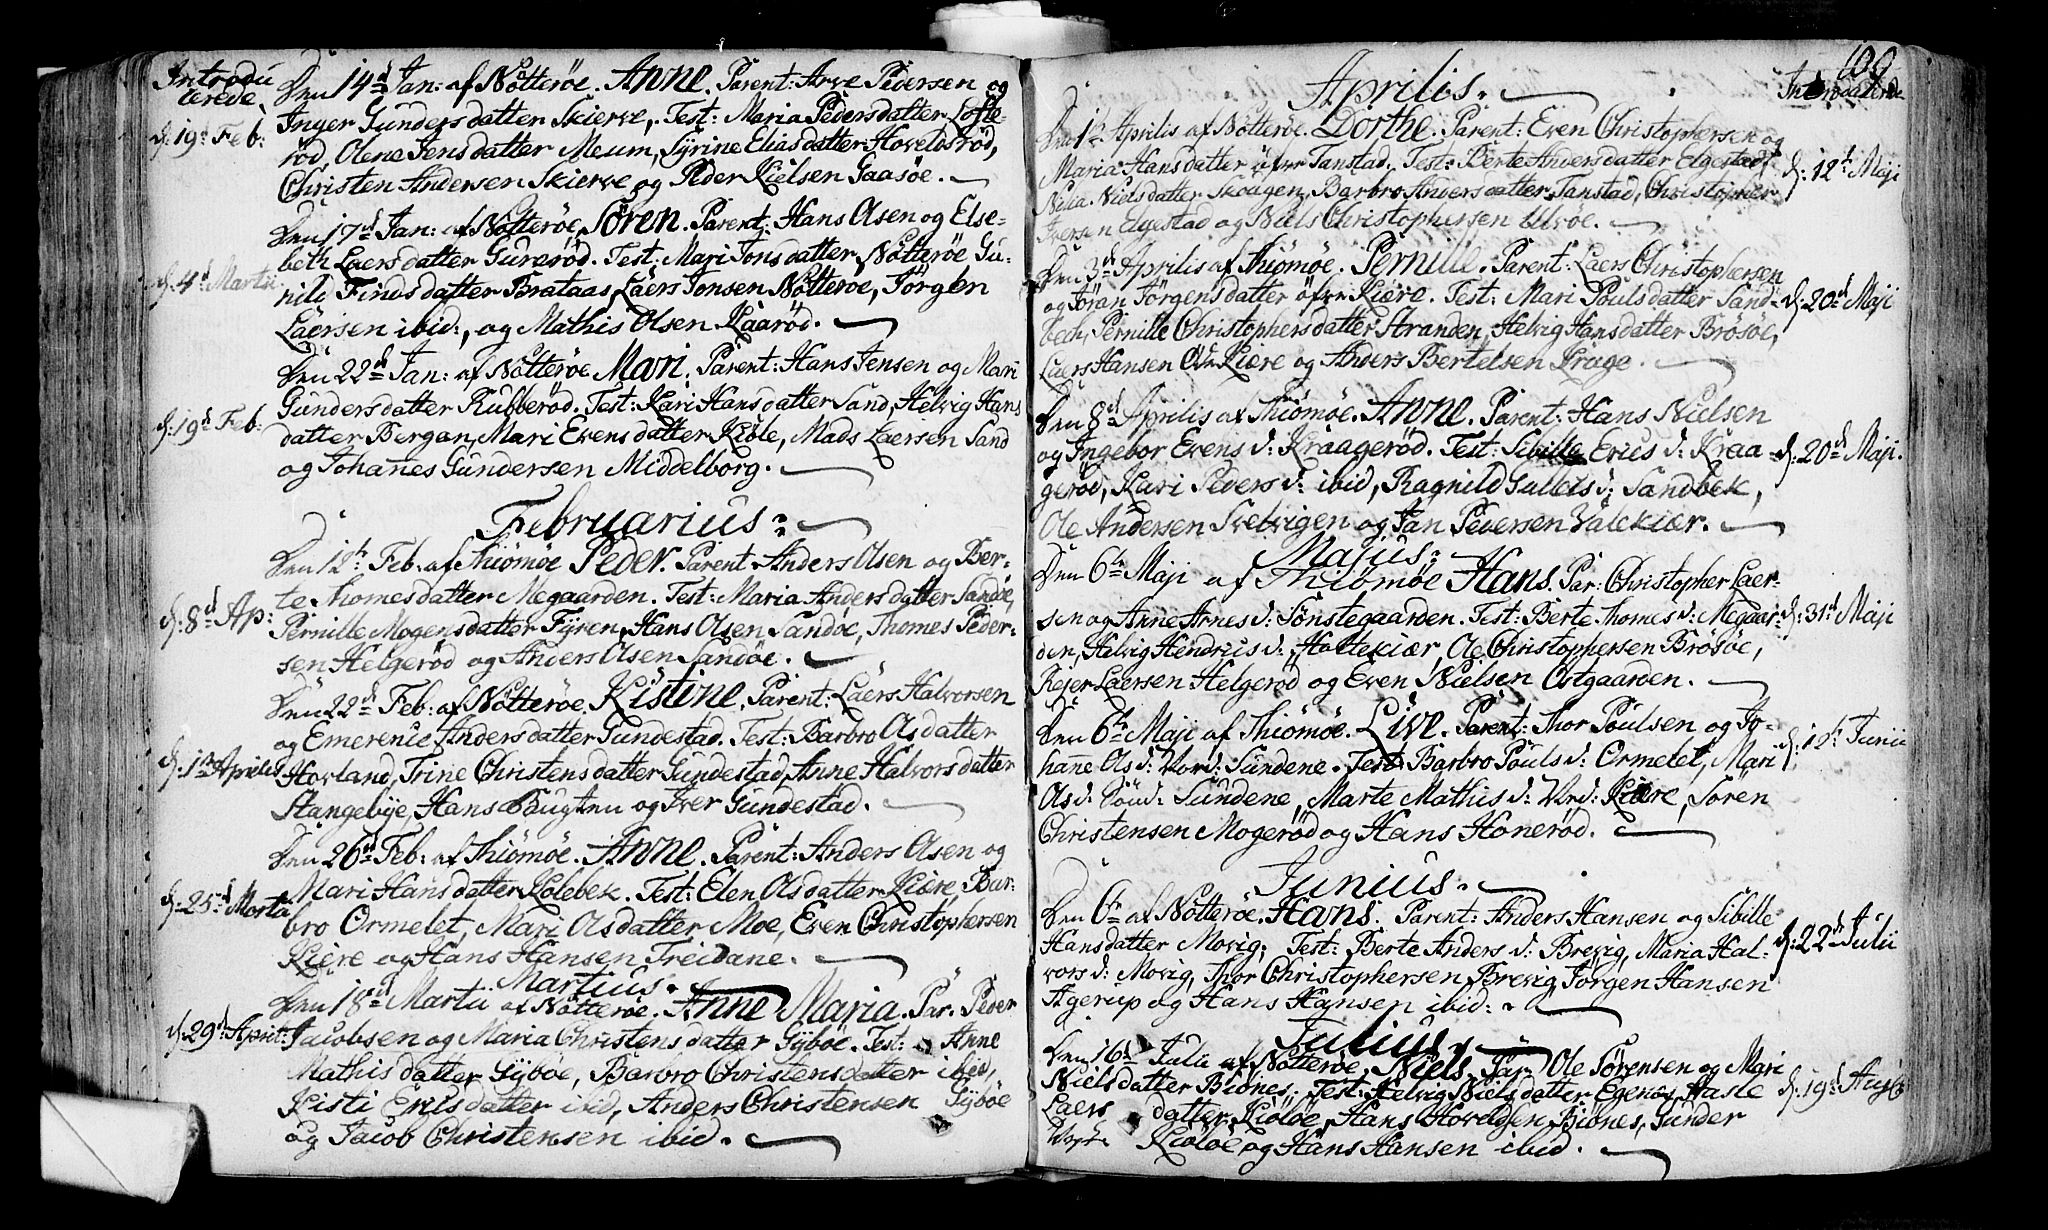 Introdu
cerede
Den 14d Jan: af Nötteröe. Anne. Parent: Arve Pedersen og
d: 19d Feb:
Inger Gundersdatter Skierve, Test: Maria Pedersdatter Lofte-
röd, Olene Jensdatter Meum, Syrine Eliasdatter Hoveldsröd,
Christen Andersen Skierve og Peder Nielsen Gaasöe.
Den 17d Jan: af Nötteröe Sören. Parent: Hans Olsen og Else-
beth Laersdatter Gureröd. Test: Mari Jonsdatter Nötteröe Gu-
d: 4d Martii
nild Findsdatter Brataas, Laers Jonsen Nötteroe, Jörgen
Laersen ibid:, og Mathis Olsen Kaaröd.
Den 22d Jan: af Nötteröe Mari. Parent: Hans Jensen og Mari
d: 19d Feb:
Gundersdatter Rubberöd. Test: Kari Hansdatter Sand, Helvig Hans
datter Bergan, Mari Evensdatter Kiöle, Mads Laersen Sand
og Johañes Gundersen Middelborg.
Februarius:
Den 12t Feb: af Thiömöe Peder. Parent Anders Olsen og Ber-
te Thomesdatter Megaarden. Test: Maria Andersdatter Sandöe,
d: 8d Ap:
Pernille Mogensdatter Fyren, Hans Olsen Sandöe, Thomes Peder-
sen Helgeröd og Anders Olsen Sandöe.
Den 22d Feb: af Nötteröe. Kistine. Parent: Laers Halvorsen
og Emerence Andersdatter Gundestad. Test: Barbro Olsdatter
d: 1te Aprilis
Hovland, Trine Christensdatter Gundestad, Anne Halvorsdatter
Stangebye, Hans Bugten og Iver Gundestad.
Den 26d Feb: af Thiömöe. Anne. Parent: Anders Olsen og
Mari Hansdatter Holebek. Test: Elen Olsdatter Kiære, Bar-
d: 25d Martii
bro Ormelet, Mari Olsdatter Moe, Even Christophersen
Kiere og Hans Hansen Treidane.
Martius.
Den 18d Martii af Nötteröe. Anne Maria. Par. Peder
d. 29d April:
Jacobsen og Maria Christensdatter Gyböe. Test: Anne
Mathisdatter Gyböe, Barbro Christensdatter ibid,
Kisti Erichsdatter ibid, Anders Christensen Gyböe
og Jacob Christensen ibid.
109
Introducerede
Aprilis.
Den 1te Aprilis af Nötteröe. Dorthe. Parent: Even Christophersen og
Maria Hansdatter öfvr Tanstad. Test: Berte Andersdatter Elgestad,
d: 12t Maji
Nilia Nielsdatter Skougen, Barbro Andersdatter Tanstad, Christopher
Iversen Elgestad og Niels Christophersen Ulvöe.
Den 3d Aprilis af Thiömöe. Pernille. Parent: Laers Christophersen
og Jöran Jörgensdatter öfvr Kiære. Test: Mari Poulsdatter Sand-
d: 20d Maji
bech, Pernille Christophersdatter Stranden, Helvig Hansdatter Brösöe,
Laers Hansen Ovr Kiære og Anders Bertelsen Krage.
Den 8d Aprilis af Thiömöe. Anne. Parent: Hans Nielsen
og Ingebor Evens d: Kraageröd. Test: Sibille Erics d: Kraa-
d: 20d Maji.
geröd, Kari Peders d: ibid, Ragnild Gullets d: Sandbek,
Ole Andersen Svelvigen og Jan Pedersen Valekiær.
Majus.
Den 6te Maji af Thiömöe Hans. Par: Christopher Laer-
sen og Anne Arnes d: Sönstegaarden. Test: Berte Thomes d: Megaar-
d: 31d Maji
den, Helvig Hendrics d: Hottekiær, Ole Christophersen Brösöe,
Rejer Laersen Helgeröd og Even Nielsen Ostgaarden.
Den 6te Maji af Thiömöe. Live. Parent: Thor Poulsen og Jo-
d: 12t Junii
hañe Ols d: Nord: Sundene. Test: Barbro Pouls d: Ormelet, Mari
Ols d: Sönd: Sundene, Marte Mathis d: Kiære, Sören
Christensen Mogeröd og Hans Honeröd.
Junius.
Den 6te af Nötteröe. Hans. Parent: Anders Hansen og Sibille
Hansdatter Movig; Test: Berte Anders d: Brevig, Maria Hal-
d: 22d Julii
vors d: Movig, Thor Christophersen Brevig, Jörgen Hansen
Agerup og Hans Hansen ibid:
Julius,
Den 16d Julii af Nötteröe, Niels. Par: Ole Sörensen og Mari
Nielsdatter Biönes, Test: Helvig Nielsdatter Egenes, Aasle
d: 19d Aug:
Laers datter Kiölöe, Hans Hovelsen Biönes, Gunder
Kiölöe og Hans Hansen ibid.